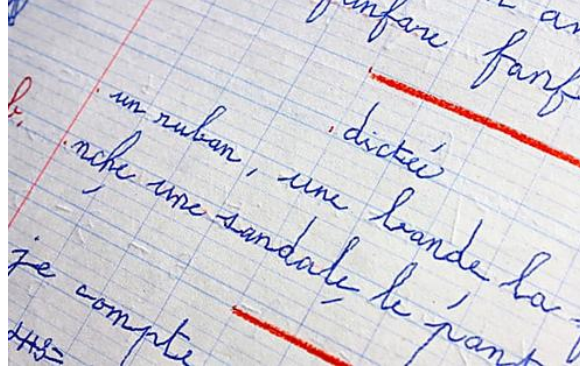 fanfare fanf
dictée
un ruban, une bande la
nche une sandale, le pant
je compte